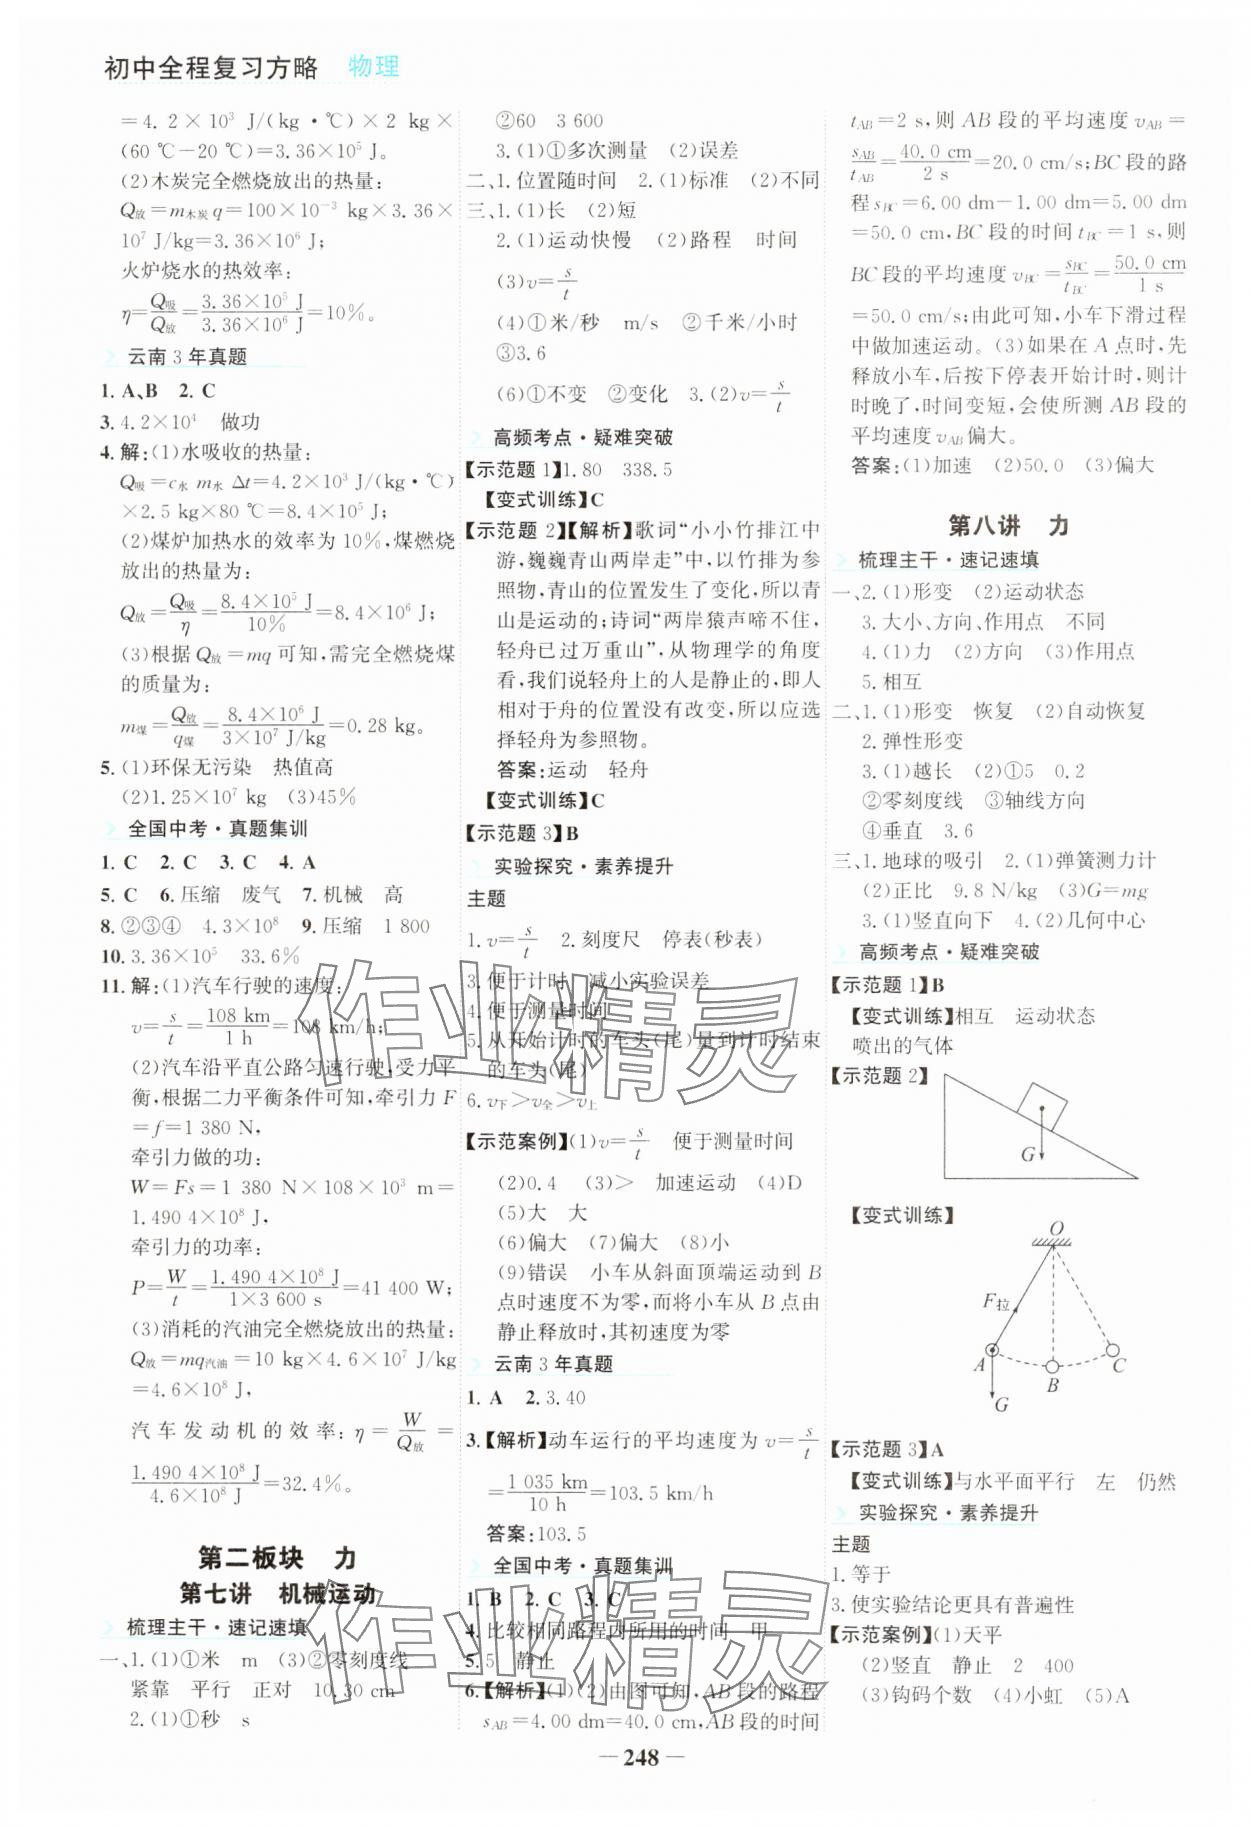 初中全程复习方略 物理
=4.2×10³ J/(kg·℃)×2 kg×
(60 ℃-20 ℃)=3.36×10⁵ J。
(2)木炭完全燃烧放出的热量:
Q放=m木炭q=100×10⁻³ kg×3.36×
10⁷ J/kg=3.36×10⁶ J;
火炉烧水的热效率:
η=Q吸/Q放=3.36×10⁵ J/3.36×10⁶ J=10%。
云南3年真题
1. A、B 2. C
3. 4.2×10⁴ 做功
4. 解:(1)水吸收的热量:
Q吸=c水 m水 Δt=4.2×10³ J/(kg·℃)
×2.5 kg×80 ℃=8.4×10⁵ J;
(2)煤炉加热水的效率为10%,煤燃烧
放出的热量为:
Q放=Q吸/η=8.4×10⁵ J/10%=8.4×10⁶ J;
(3)根据Q放=mq可知,需完全燃烧煤
的质量为:
m煤=Q放/q煤=8.4×10⁶ J/3×10⁷ J/kg=0.28 kg。
5. (1)环保无污染 热值高
(2)1.25×10⁷ kg (3)45%
全国中考·真题集训
1. C 2. C 3. C 4. A
5. C 6. 压缩 废气 7. 机械 高
8. ②③④ 4.3×10⁸ 9. 压缩 1 800
10. 3.36×10⁵ 33.6%
11. 解:(1)汽车行驶的速度:
v=s/t=108 km/1 h=108 km/h;
(2)汽车沿平直公路匀速行驶,受力平
衡,根据二力平衡条件可知,牵引力F
=f=1 380 N,
牵引力做的功:
W=Fs=1 380 N×108×10³ m=
1.490 4×10⁸ J,
牵引力的功率:
P=W/t=1.490 4×10⁸ J/1×3 600 s=41 400 W;
(3)消耗的汽油完全燃烧放出的热量:
Q放=mq汽油=10 kg×4.6×10⁷ J/kg
=4.6×10⁸ J,
汽车发动机的效率:η=W/Q放=
1.490 4×10⁸ J/4.6×10⁸ J=32.4%。
第二板块 力
第七讲 机械运动
梳理主干·速记速填
一、1.(1)①米 m (3)②零刻度线
紧靠 平行 正对 10.30 cm
2.(1)①秒 s
②60 3 600
3.(1)①多次测量 (2)误差
二、1.位置随时间 2.(1)标准 (2)不同
三、1.(1)长 (2)短
2.(1)运动快慢 (2)路程 时间
(3)v=s/t
(4)①米/秒 m/s ②千米/小时
③3.6
(6)①不变 ②变化 3.(2)v=s/t
高频考点·疑难突破
【示范题1】1.80 338.5
【变式训练】C
【示范题2】【解析】歌词“小小竹排江中
游,巍巍青山两岸走”中,以竹排为参
照物,青山的位置发生了变化,所以青
山是运动的;诗词“两岸猿声啼不住,
轻舟已过万重山”,从物理学的角度
看,我们说轻舟上的人是静止的,即人
相对于舟的位置没有改变,所以应选
择轻舟为参照物。
答案:运动 轻舟
【变式训练】C
【示范题3】B
实验探究·素养提升
主题
1. v=s/t 2. 刻度尺 停表(秒表)
3. 便于计时 减小实验误差
4. 便于测量时间
5. 从开始计时的车头(尾)量到计时结束
的车头(尾)
6. v下>v全>v上
【示范案例】(1)v=s/t 便于测量时间
(2)0.4 (3)> 加速运动 (4)D
(5)大 大
(6)偏大 (7)偏大 (8)小
(9)错误 小车从斜面顶端运动到B
点时速度不为零,而将小车从B点由
静止释放时,其初速度为零
云南3年真题
1. A 2. 3.40
3.【解析】动车运行的平均速度为v=s/t
=1 035 km/10 h=103.5 km/h
答案:103.5
全国中考·真题集训
1. B 2. C 3. C
4. 比较相同路程内所用的时间 甲
5. 5 静止
6.【解析】(1)(2)由图可知,AB段的路程
sAB=4.00 dm=40.0 cm,AB段的时间
tAB=2 s,则AB段的平均速度vAB=
sAB/tAB=40.0 cm/2 s=20.0 cm/s;BC段的路
程sBC=6.00 dm-1.00 dm=5.00 dm
=50.0 cm,BC段的时间tBC=1 s,则
BC段的平均速度vBC=sBC/tBC=50.0 cm/1 s
=50.0 cm/s;由此可知,小车下滑过程
中做加速运动。(3)如果在A点时,先
释放小车,后按下停表开始计时,则计
时晚了,时间变短,会使所测AB段的
平均速度vAB偏大。
答案:(1)加速 (2)50.0 (3)偏大
第八讲 力
梳理主干·速记速填
一、2.(1)形变 (2)运动状态
3.大小、方向、作用点 不同
4.(1)力 (2)方向 (3)作用点
5.相互
二、1.(1)形变 恢复 (2)自动恢复
2.弹性形变
3.(1)越长 (2)①5 0.2
②零刻度线 ③轴线方向
④垂直 3.6
三、1.地球的吸引 2.(1)弹簧测力计
(2)正比 9.8 N/kg (3)G=mg
3.(1)竖直向下 4.(2)几何中心
高频考点·疑难突破
【示范题1】B
【变式训练】相互 运动状态
喷出的气体
【示范题2】
G
【变式训练】
O
F拉
A B C
G
【示范题3】A
【变式训练】与水平面平行 左 仍然
实验探究·素养提升
主题
1. 等于
3. 使实验结论更具有普遍性
【示范案例】(1)天平
(2)竖直 静止 2 400
(3)钩码个数 (4)小虹 (5)A
作业精灵
作业精灵
— 248 —